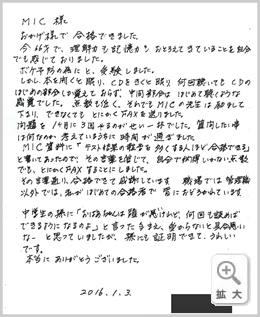 MIC 様
おかげ様で合格できました。
今66才で、理解力も記憶力もおとろえてきていることを自分
でも感じておりました。
ボケ予防の為にと、受験しました。
しかし本を開くと眠り、CDをきくと眠り、何回聴いてもCDの
はじめの部分しか覚えておらず、中間部分ははじめて聴くような
感覚でした。点数も低く、それでもMICの先生は励まして
下さり、できなくてもとにかくFAXを送りました。
問題を1ヶ月に3回やるのがせい一杯でした。質問したい事
は何なのか考えているうちに時間が過ぎました。
MIC資料に「テスト結果の報告を多くする人ほど合格できる」
と書いてあったので、その言葉を信じて、自分で納得しかない点数
でも、とにかくFAXすることにしました。
その言葉通り、合格できて感謝しています 職場では管理職
以外では、私がはじめての合格者で皆におどろかれています。
中学生の孫に「おばあちゃんは頭が悪いけれど、何回も読めば
できるようになるのよ」と言ったらまぁ、受からないと具合悪い
なーと思っていましたが、孫にも証明できて、うれしい
です。
本当にありがとうございました。
2016.1.3.
拡大